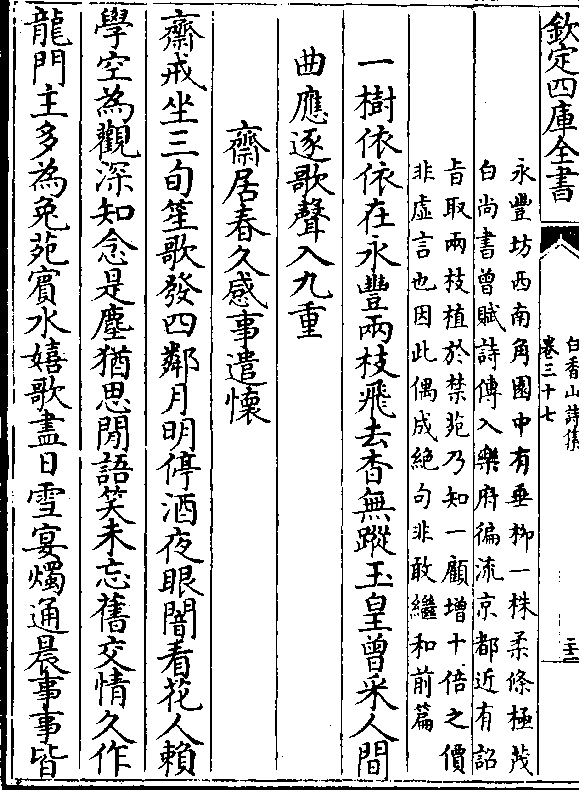 欽定四庫全書
白香山詩集
卷三十七
二十二
永豐坊西南角園中有垂柳一株柔條極茂
白尚書曾賦詩傳入樂府徧流京都近有詔
旨取兩枝植於禁苑乃知一顧增十倍之價
非虛言也因此偶成絕句非敢繼和前篇
一樹依依在永豐兩枝飛去杳無蹤玉皇曾采人間
曲應逐歌聲入九重
齋居春久感事遣懷
齋戒坐三旬笙歌發四鄰月明停酒夜眼闇看花人賴
學空為觀深知念是塵猶思閒語笑未忘舊交情久作
龍門主多為兔苑賓水嬉歌盡日雪宴燭通晨事事皆